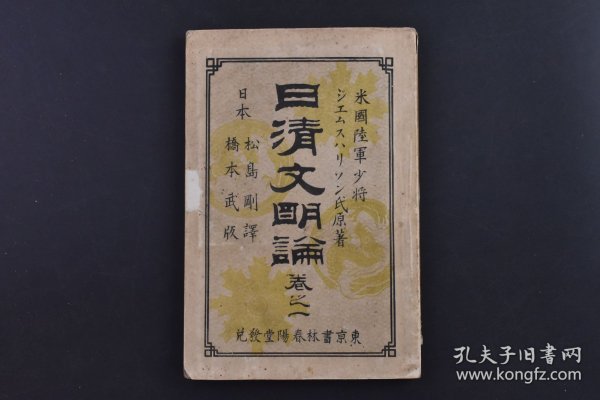 米國陸軍少将
ジエムスハリソン氏原著
日清文明論 卷之一
日本 松島剛譯
橋本武版
東京書林春陽堂發兌
孔夫子旧书网
www.kongfz.com